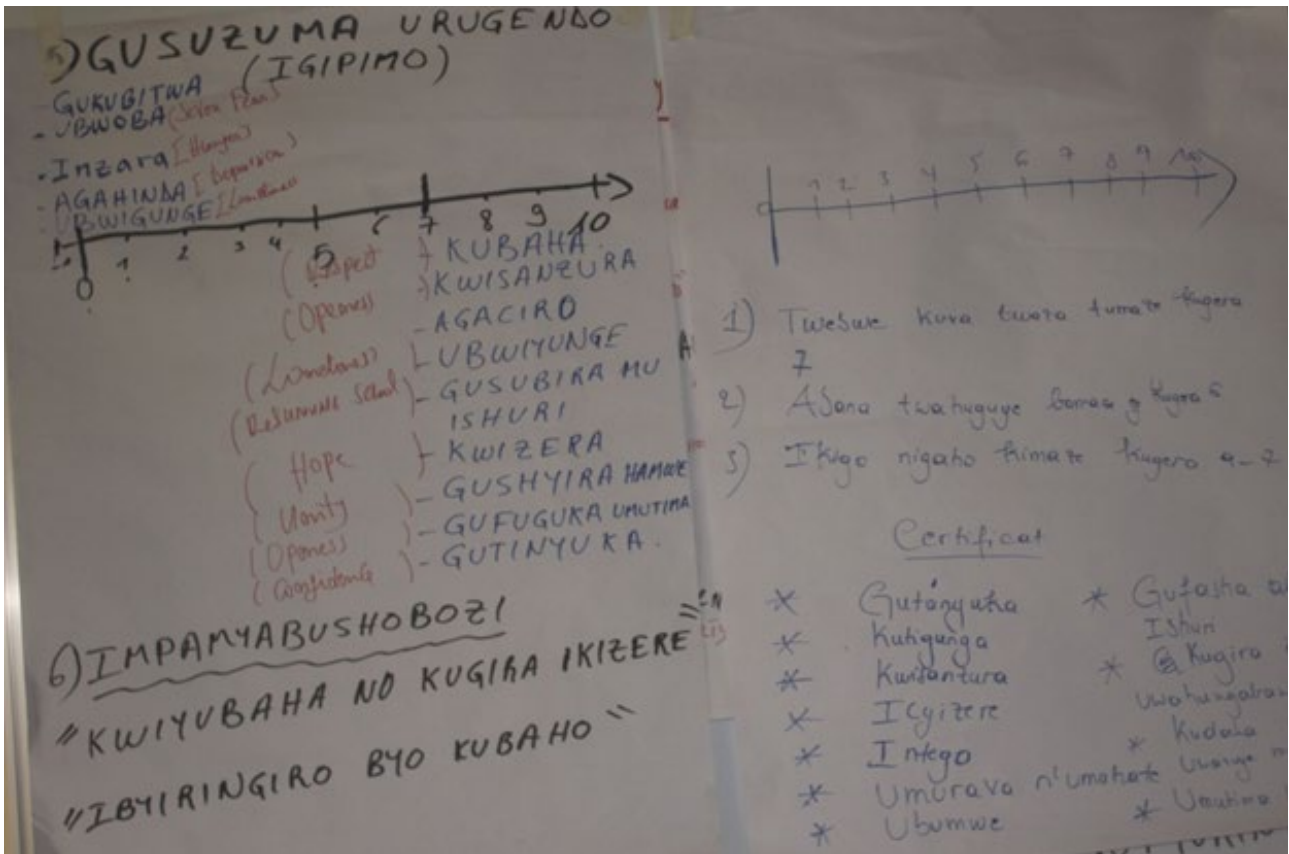 5) GUSUZUMA URUGENDO
(IGIPIMO)
- GUKUBITWA
- UBWOBA (Fear)
- Inzara [Hunger)
- AGAHINDA [
- UBWIGUNGE [Loneliness
0 1 2 3 4 5 6 7 8 9 10
(Respect } KUBAHA.
(Openess } KWISANZURA
- AGACIRO
- UBWIYUNGE
(Resumme School) - GUSUBIRA MU
ISHURI
( Hope } KWIZERA
( Unity ) - GUSHYIRA HAMWE
(Openess ) - GUFUGUKA UMUTIMA
(Confidence ) - GUTINYUKA.
6) IMPAMYABUSHOBOZI
"KWIYUBAHA NO KUGIRA IKIZERE"
"IBYIRINGIRO BYO KUBAHO"
0 1 2 3 4 5 6 7 8 9 10
1) Twebwe kuva twaza tumaze kugera
7
2) Abana twahuguye
3) Ikigo nigaho kimaze kugera 4-7
Certificat
* Gutinyuka
* Kutigunga
* Kwisanzura
* Icyizere
* Intego
* Umurava n'umuhate
* Ubumwe
* Gufasha
Ishuri
* Kugira
* Kudata
* Umutima